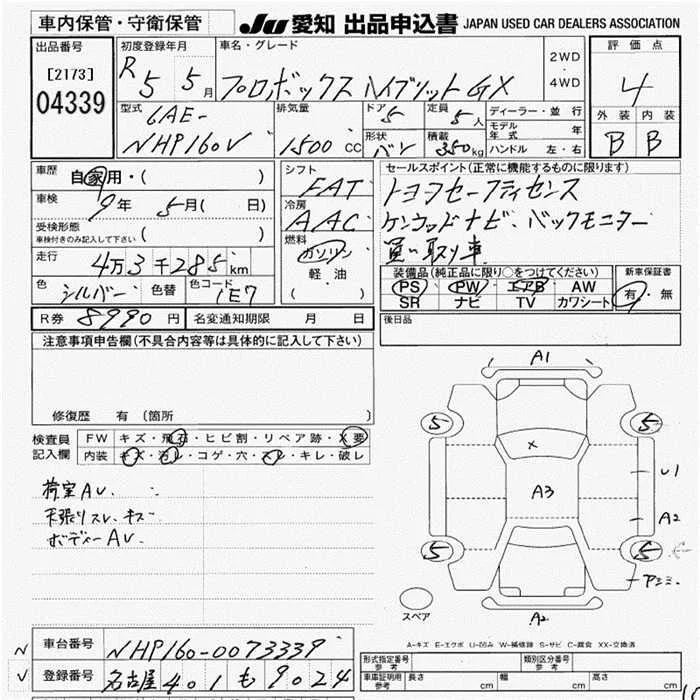 車内保管・守衛保管
JU 愛知 出品申込書 JAPAN USED CAR DEALERS ASSOCIATION
出品番号
[2173]
04339
初度登録年月
R 5 5月
車名・グレード
プロボックス ハイブリット GX
2WD
・
4WD
評価点
4
外装 内装
B B
型式
6AE-
NHP160V
排気量
1500 CC
ドア 5
定員 5人
形状 バン
積載 350kg
ディーラー・並行
モデル年式 年
ハンドル 左・右
車歴
自家用・( )
車検
9年 5月( 日)
受検形態
車検付きのみ記入して下さい ( )
走行
4万3千285km
色 シルバー 色替 色コード 1E7
シフト
FAT
冷房
AAC
燃料
ガソリン
軽油
( )
セールスポイント(正常に機能するものに限ります)
トヨタセーフティセンス
ケンウッドナビ、バックモニター
買い取り車
装備品(純正品に限り○をつけてください)
PS PW エアB AW
SR ナビ TV カワシート
新車保証書
有・無
R券 8990円 名変通知期限 月 日
後日品
注意事項申告欄(不具合内容等は具体的に記入して下さい)
修復歴 有(箇所 )
検査員記入欄
FW キズ・飛石・ヒビ割・リペア跡・X要
内装 キズ・汚レ・コゲ・穴・スレ・キレ・破レ
荷室 AU.
天張りスレ、キズ
ボディー AU.
A1
5 5
X
U1
A3
A2
5 5
A2
スペア
A-キズ E-エクボ U-凹み W-補修跡 S-サビ C-腐食 XX-交換済
車台番号 NHP160-0073339
登録番号 名古屋 401 も 9024
形式指定番号 参考
類別区分番号 参考
車庫証明用 参考 長さ cm 幅 cm 高さ cm